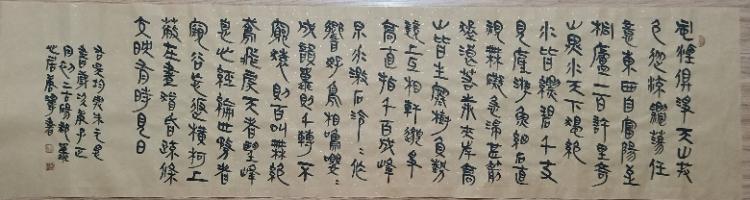 風煙俱淨天山共
色從流飄蕩任
意東西自富陽至
桐廬一百許里奇
山異水天下獨絕
水皆縹碧千丈
見底游魚細石直
視無礙急湍甚箭
猛浪若奔夾岸高
山皆生寒樹負勢
競上互相軒邈爭
高直指千百成峰
泉水激石泠泠作
響好鳥相鳴嚶嚶
成韻蟬則千轉不
窮猨則百叫無絕
鳶飛戾天者望峰
息心經綸世務者
窺谷忘返橫柯上
蔽在晝猶昏疏條
交映有時見日
吳均與朱元思
書歲次庚子正
月初三